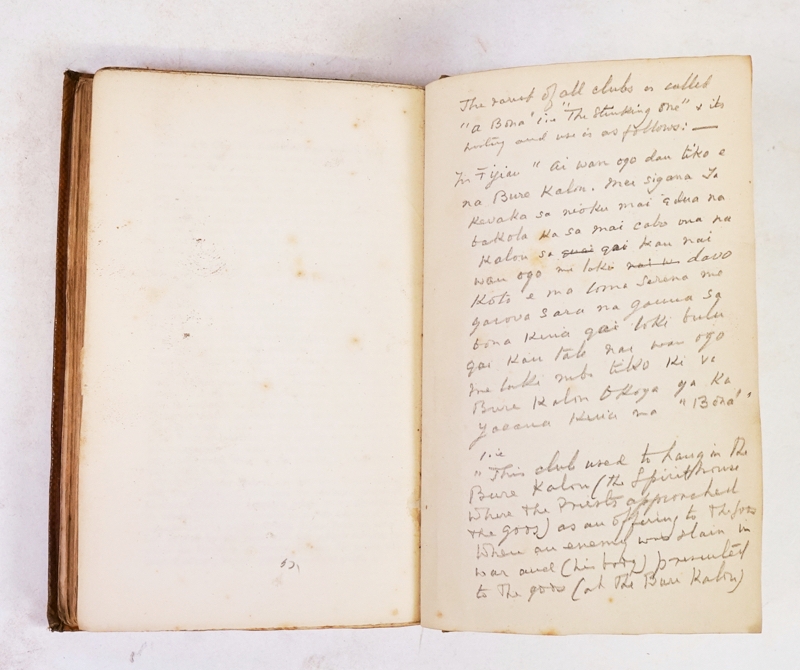 The rarest of all clubs is called
"a Bona" i.e "The Stinking One" & its
history and use is as follows: —
In Fijian "Ai wau ogo dau tiko e
na Bure Kalou. Mei sigana Ia
Kevaka sa mai e dua na
bakola ka sa mai cabo vua na
Kalou sa qai kau nai
wau ogo me laki davo
Koto e na loma me
yacova sara na gauna sa
bona kina qai laki bulu
qai kau tale nai wau ogo
me laki tiko ki ve
Bure Kalou O Koya ya ka
yacana kina na "Bona"
i.e
"This club used to hang in the
Bure Kalou (the Spirit house
where the Priests approached
the gods) as an offering to the gods
When an enemy was slain in
war and (his body) presented
to the gods (at the Bure Kalou)